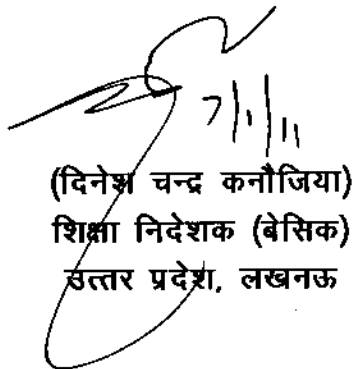 7/1/11
(दिनेश चन्द्र कनौजिया)
शिक्षा निदेशक (बेसिक)
उत्तर प्रदेश, लखनऊ